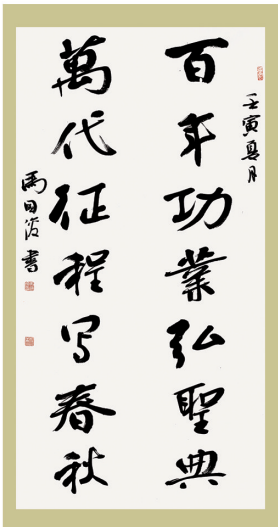 壬寅夏月
百年功業弘聖典
萬代征程写春秋
書